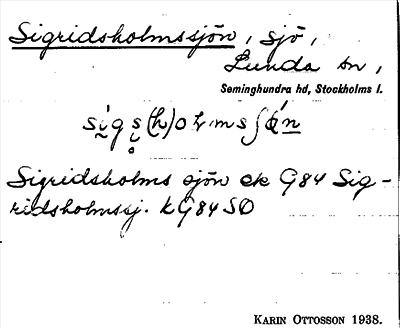 Sigridsholmssjön, sjö,
Lunda sn,
Seminghundra hd, Stockholms l.
Sigridsholms sjön ek G84 Sig-
ridsholmssj. k G84 SO
KARIN OTTOSSON 1938.